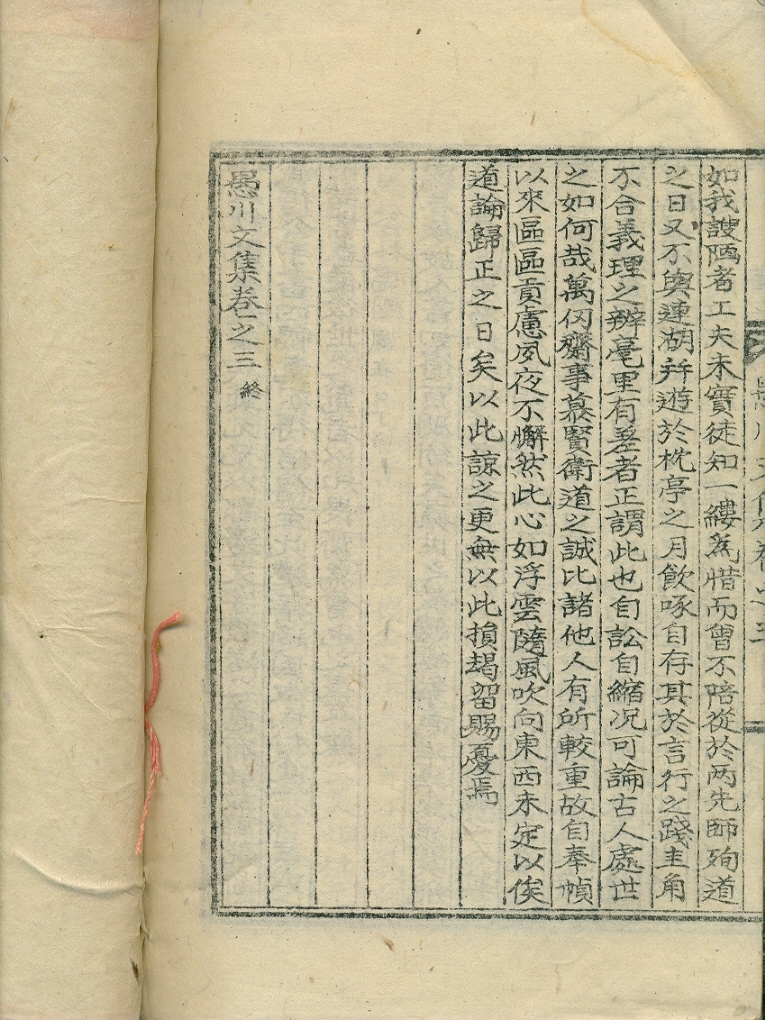 愚川文集卷之三
如我謏陋者工夫未實徒知一縷爲惜而曾不陪從於两先師殉道
之日又不與蓮湖并遊於枕亭之月飮啄自存其於言行之踐圭角
不合義理之辨毫里有差者正謂此也自訟自縮况可論古人處世
之如何哉萬仞齋事慕賢衛道之誠比諸他人有所較重故自奉幀
以來區區貢慮夙夜不懈然此心如浮雲隨風吹向東西未定以俟
道論歸正之日矣以此諒之更無以此損朅留賜憂焉
愚川文集卷之三 終